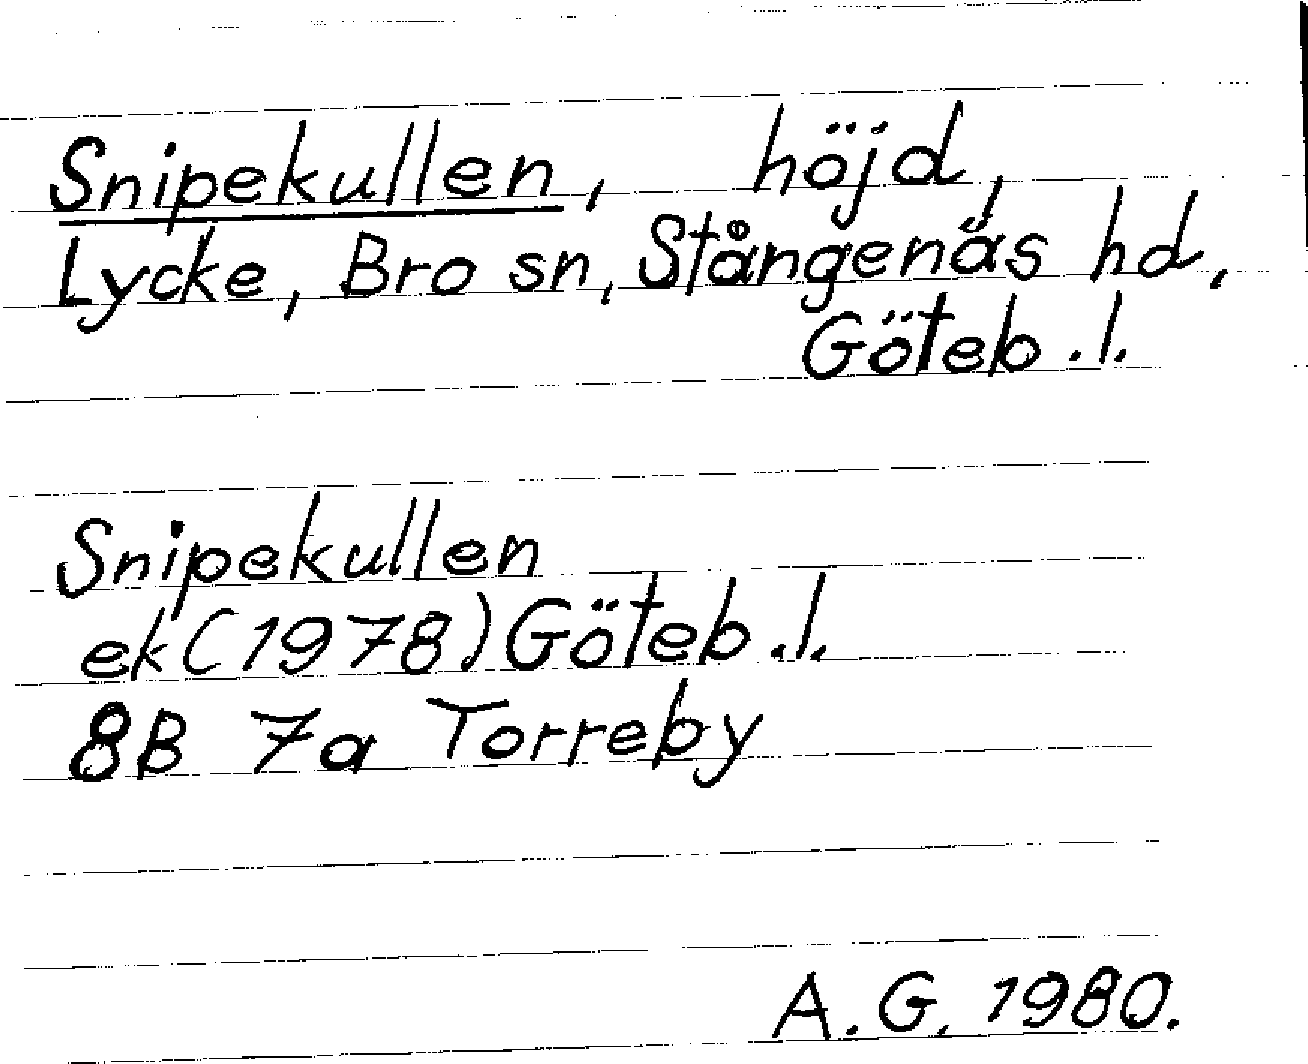 Snipekullen, höjd,
Lycke, Bro sn, Stångenäs hd,
Göteb.l.
Snipekullen
ek(1978) Göteb.l.
8B 7a Torreby
A.G. 1980.